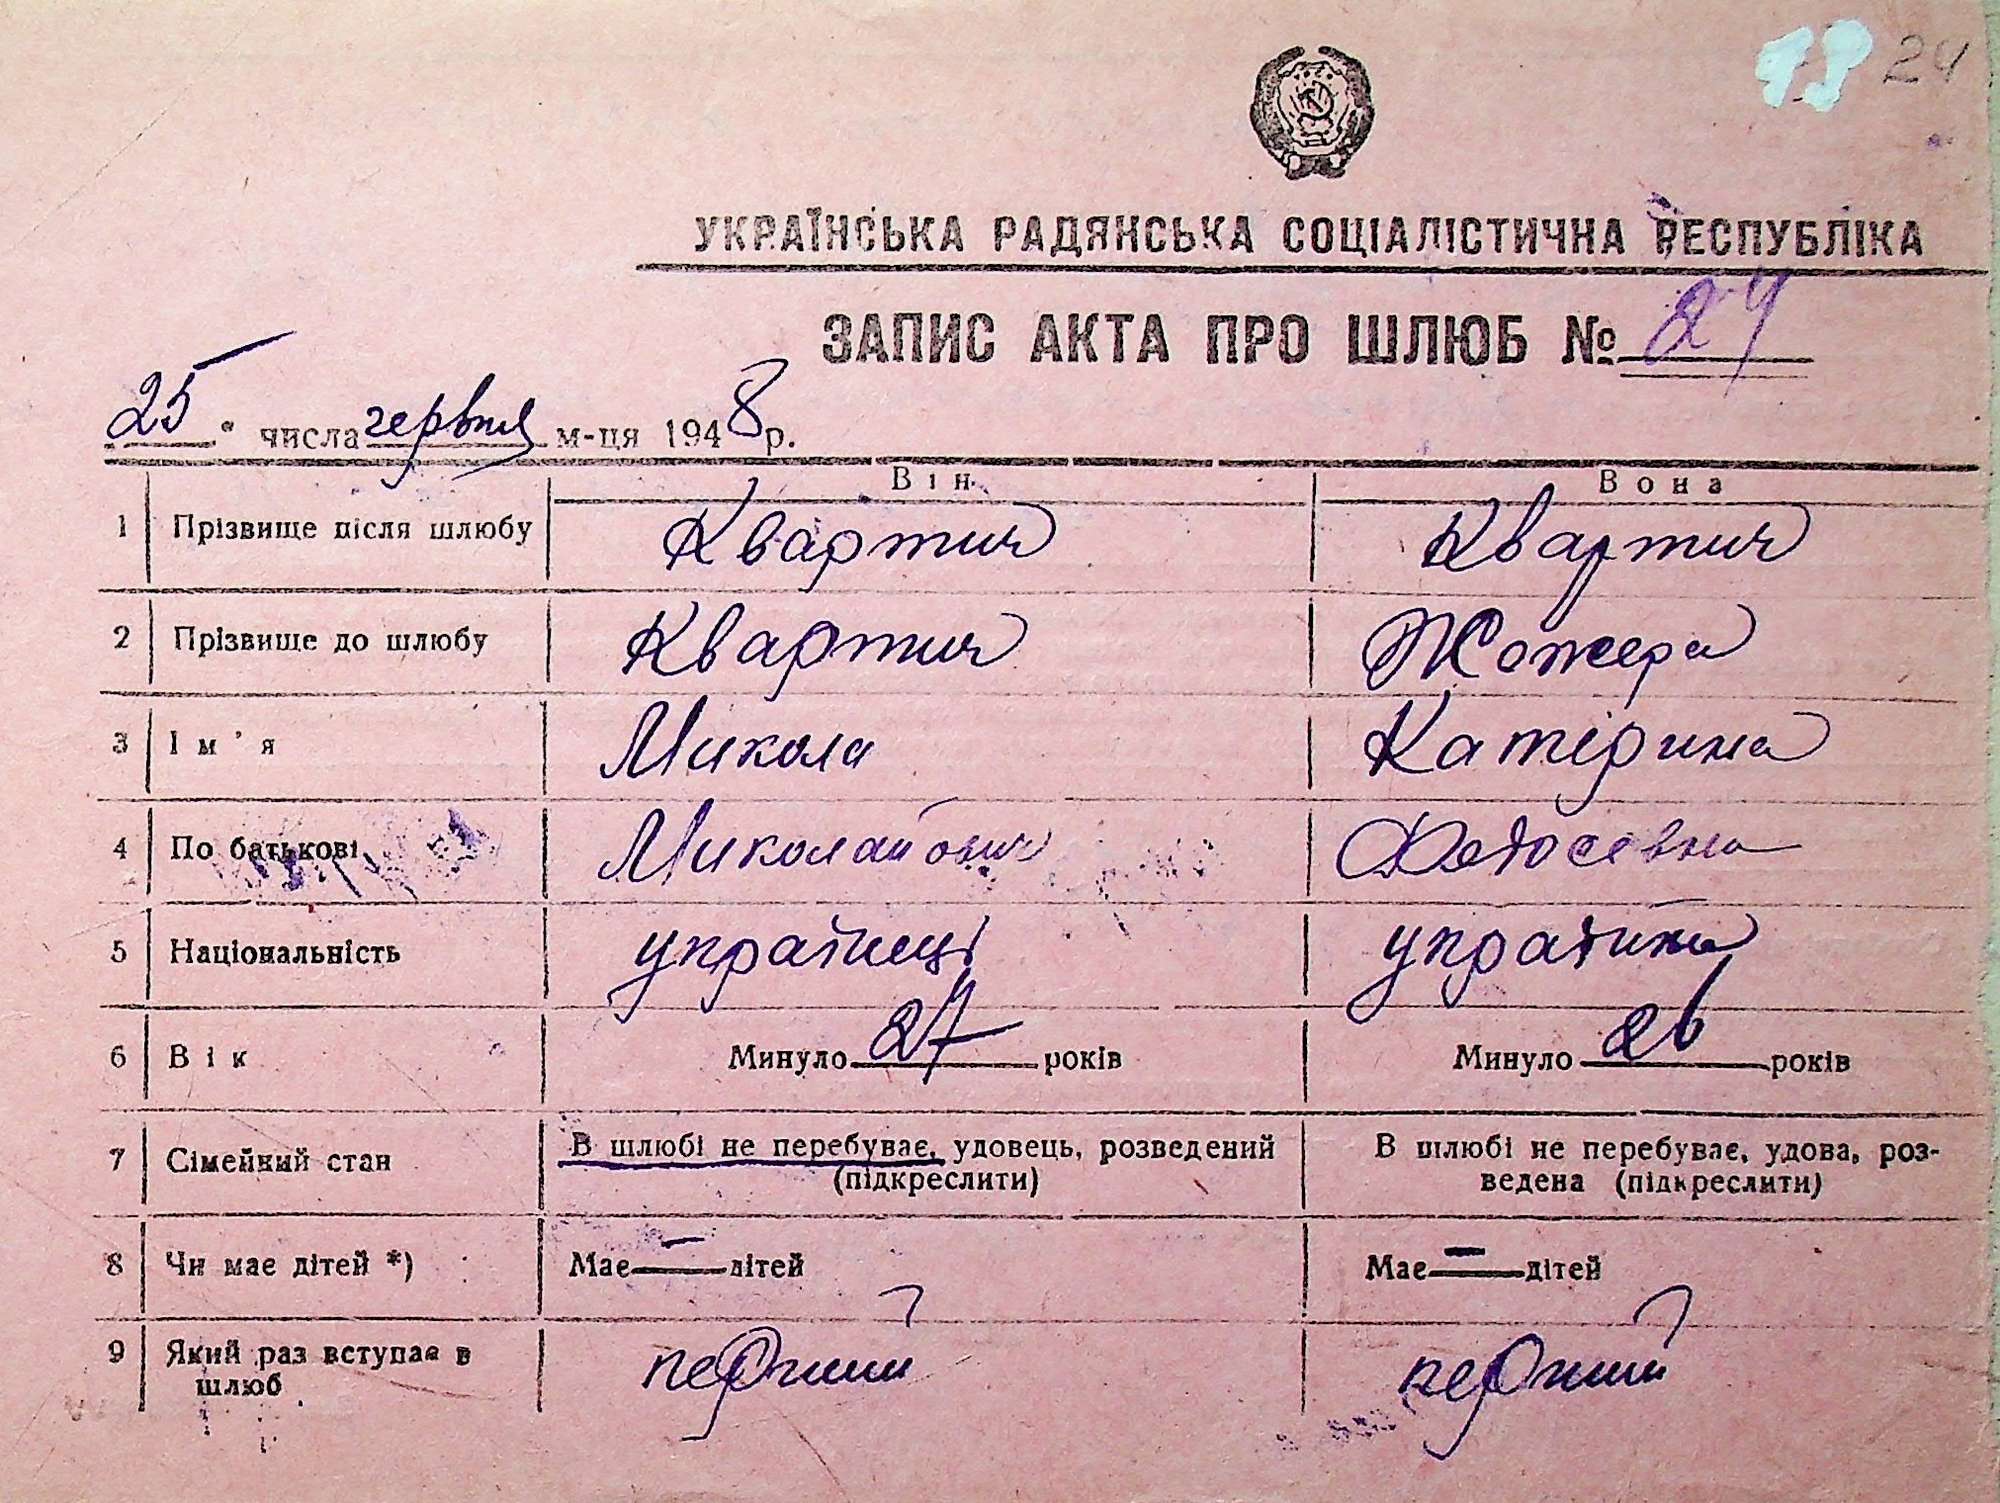 24
УКРАЇНСЬКА РАДЯНСЬКА СОЦІАЛІСТИЧНА РЕСПУБЛІКА
ЗАПИС АКТА ПРО ШЛЮБ № 24
25 числа червня м-ця 1948 р.
Він Вона
1 Прізвище після шлюбу Квартич Квартич
2 Прізвище до шлюбу Квартич Жожера
3 Ім'я Микола Катірина
4 По батькові Миколайович Федосевна
5 Національність українець українка
6 Вік Минуло 27 років Минуло 26 років
7 Сімейний стан В шлюбі не перебуває, удовець, розведений В шлюбі не перебуває, удова, роз-
(підкреслити) ведена (підкреслити)
8 Чи має дітей *) Має — дітей Має — дітей
9 Який раз вступає в первший первший
шлюб